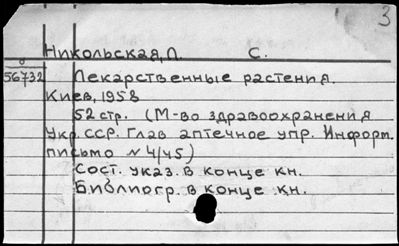 3
Никольская, Л. С.
56732 Лекарственные растения.
Киев, 1958
52 стр. (М-во здравоохранения
Укр. ССР. Глав аптечное упр. Информ.
письмо № 4/45)
Сост. указ. в конце кн.
Библиогр. в конце кн.